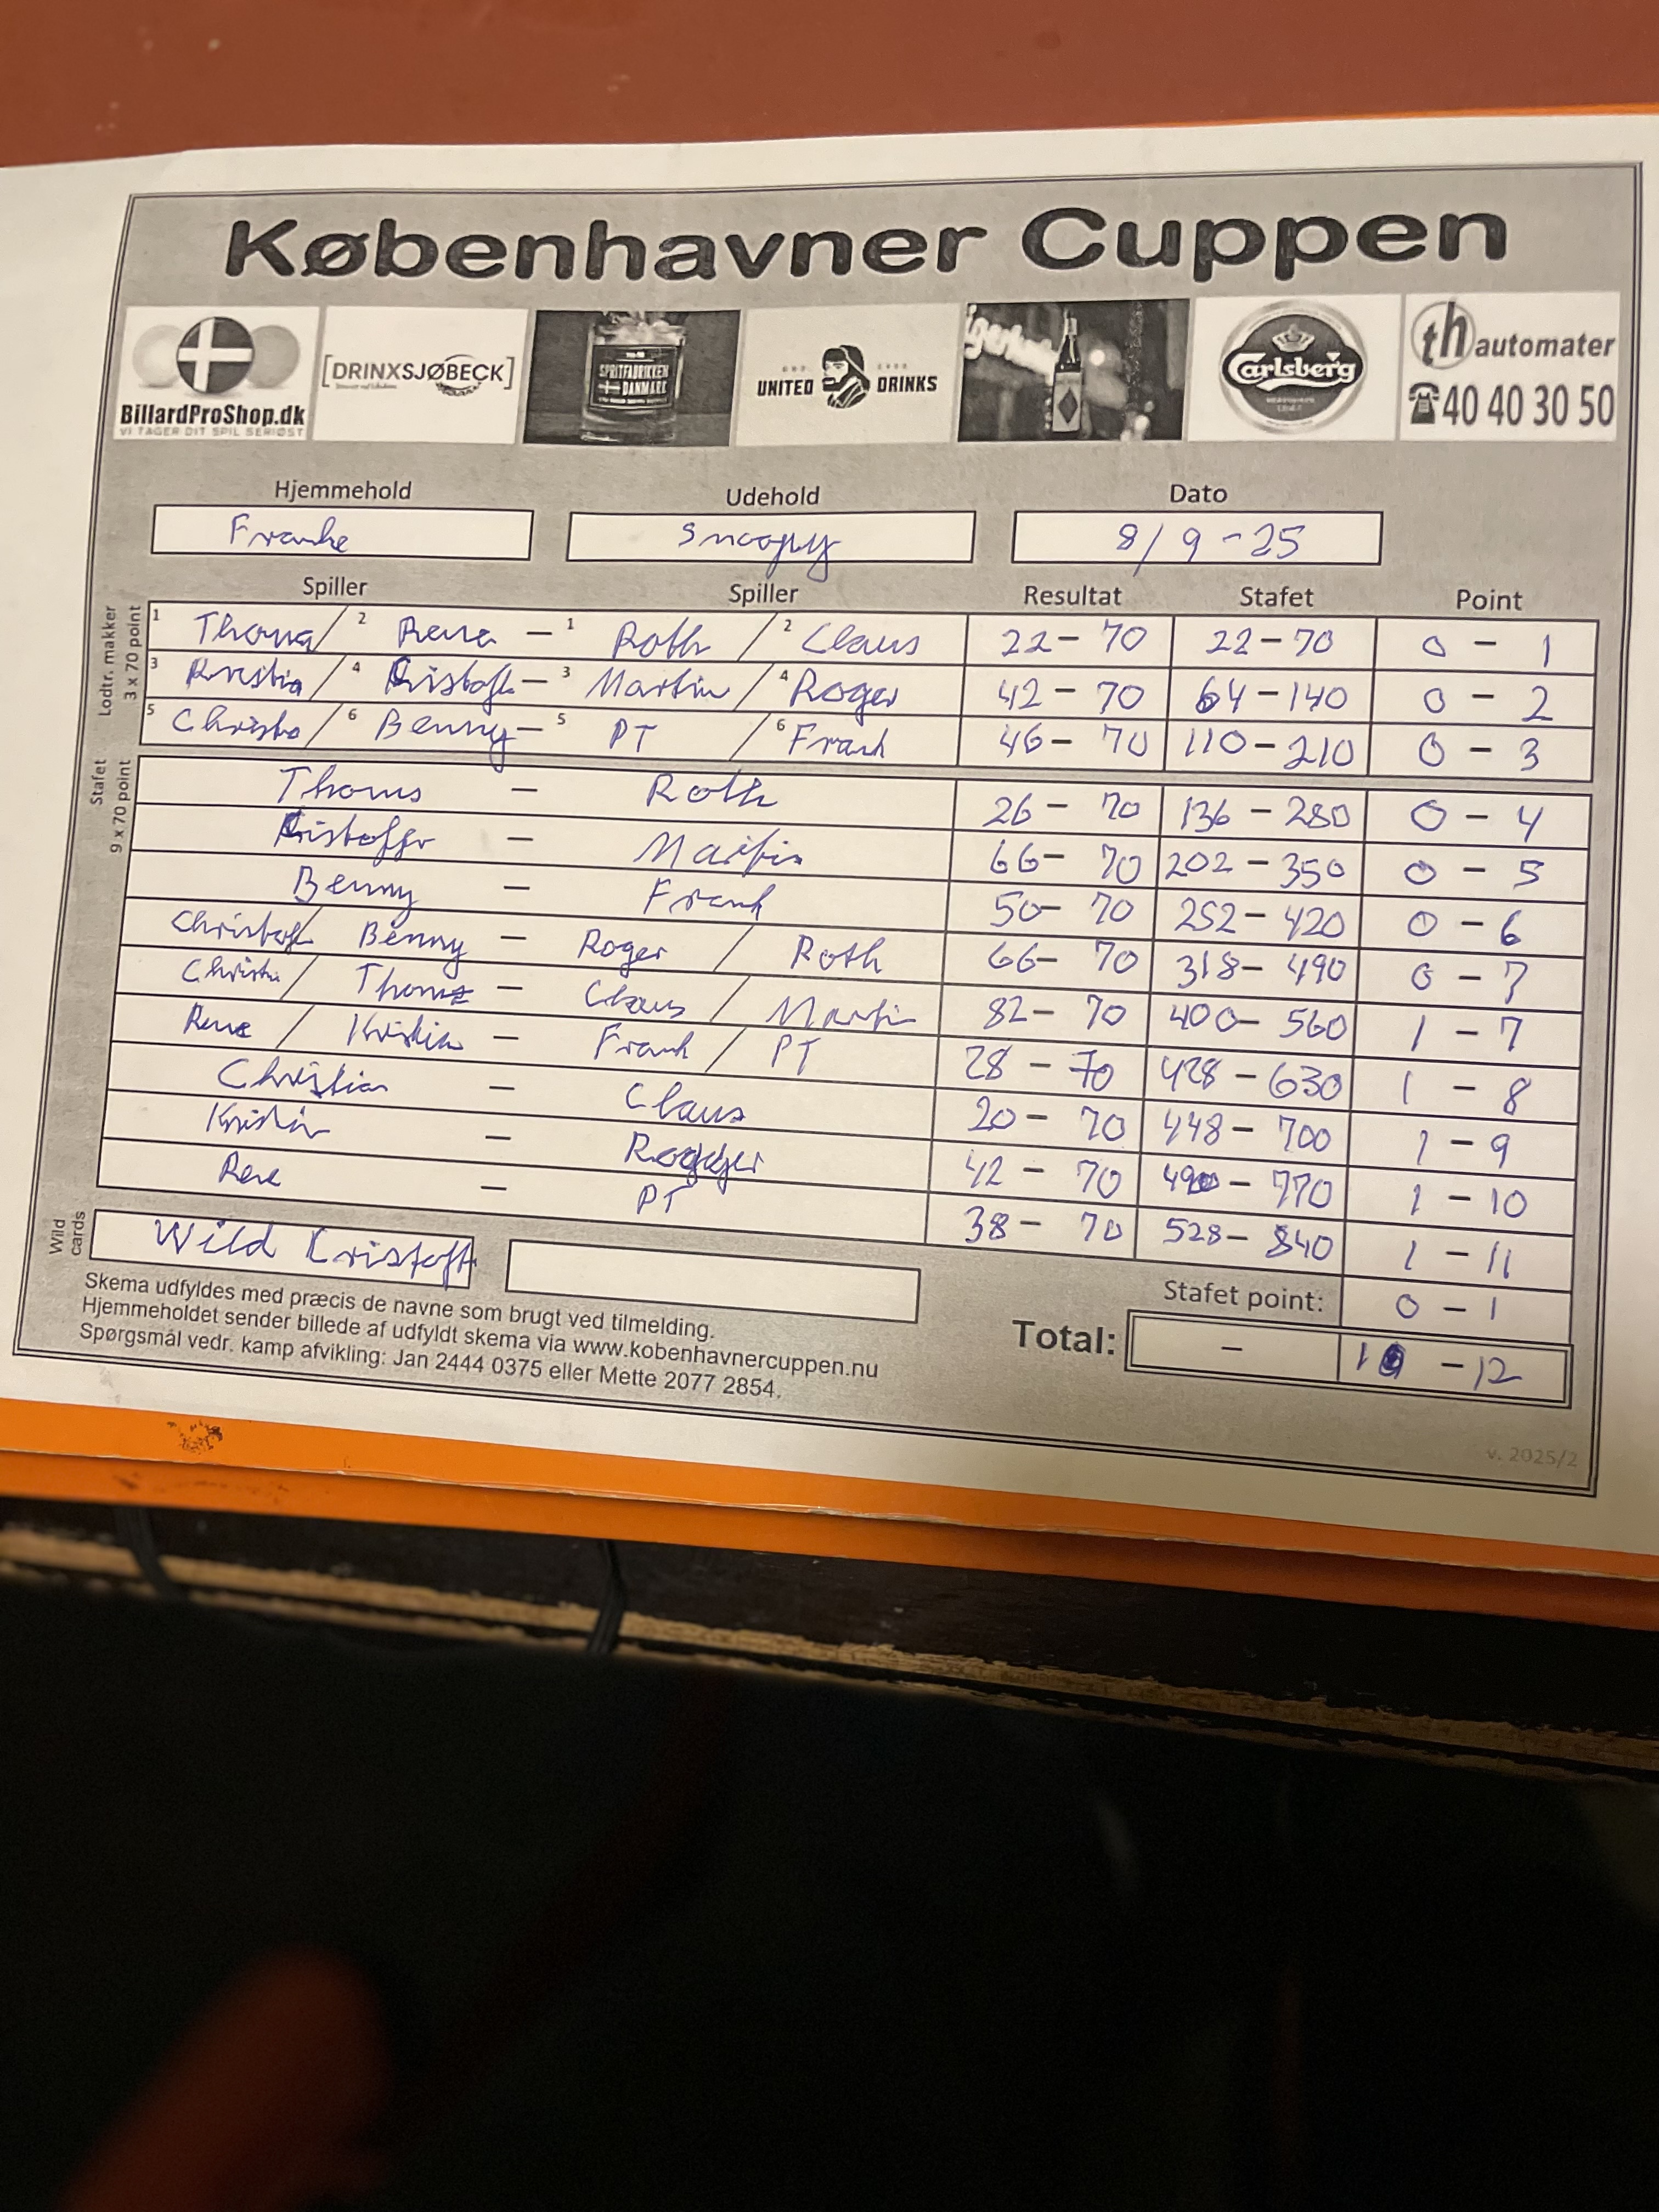 Københavner Cuppen
BillardProShop.dk
VI TAGER DIT SPIL SERIØST
[DRINXSJØBECK]
SPRITFABRIKKEN
DANMARK
UNITED DRINKS
Carlsberg
th automater
☎40 40 30 50
Hjemmehold Udehold Dato
Franke Snoopy 8/9-25
Spiller Spiller Resultat Stafet Point
Lodtr. makker
3 x 70 point
1 Thoma / 2 Rene - 1 Roth / 2 Claus 22-70 22-70 0-1
3 / 4 - 3 Martin / 4 Roger 42-70 64-140 0-2
5 Christo / 6 Benny - 5 PT / 6 Frank 46-70 110-210 0-3
Stafet
9 x 70 point
Thoms - Roth 26-70 136-280 0-4
- Martin 66-70 202-350 0-5
Benny - Frank 50-70 252-420 0-6
Benny - Roger / Roth 66-70 318-490 0-7
/ - Claus / Martin 82-70 400-560 1-7
Rene / - Frank / PT 28-70 428-630 1-8
Christian - Claus 20-70 448-700 1-9
- 42-70 490-770 1-10
Rene - PT 38-70 528-840 1-11
Wild
cards
Wild
Stafet point: 0-1
Total: - 1 -12
Skema udfyldes med præcis de navne som brugt ved tilmelding.
Hjemmeholdet sender billede af udfyldt skema via www.kobenhavnercuppen.nu
Spørgsmål vedr. kamp afvikling: Jan 2444 0375 eller Mette 2077 2854.
v. 2025/2